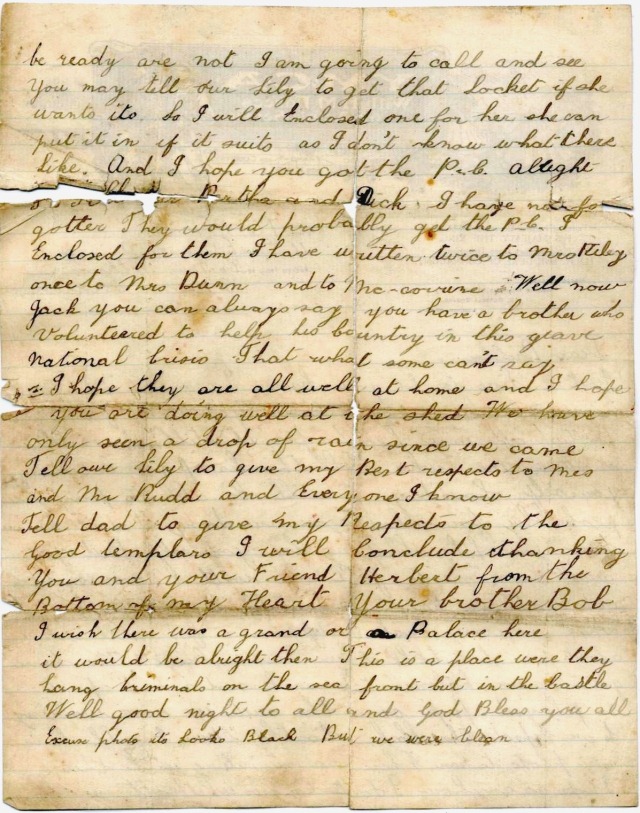 be ready are not I am going to call and see
You may tell our Lily to get that Locket if she
wants it. So I will Enclosed one for her she can
put it in if it suits as I don't know what there
Like. And I hope you got the P.C. alright
Bertha and Dick. I have not for
gotter They would probably get the P.C. I
Enclosed for them I have written twice to Mrs Riley
once to Mrs Dunn and to Well now
Jack you can always say you have a brother who
Volunteered to help his country in this grave
National Crisis That what some can't say.
I hope they are all well at home and I hope
you are doing well at the shed We have
only seen a drop of rain since we came
Tell our Lily to give my Best respects to Mrs
and Mr Rudd and Every one I know
Tell dad to give my Respects to the
Good templars I will Conclude thanking
You and your Friend Herbert from the
Bottom of my Heart Your brother Bob
I wish there was a grand or a Palace here
it would be alright then This is a place were they
hang Criminals on the sea front but in the castle
Well good night to all and God Bless you all
Excuse photo its Looks Black But we were clean